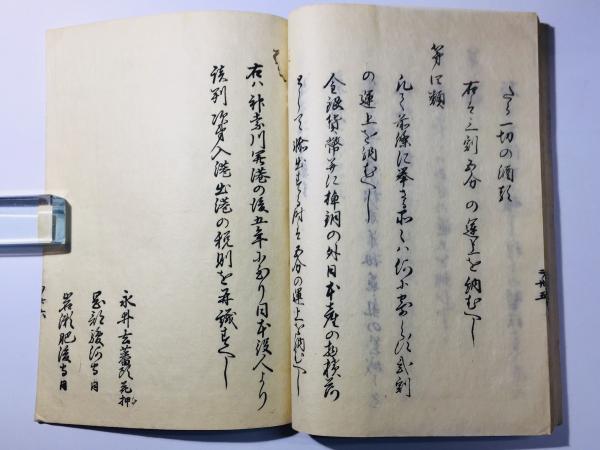 たる一切の酒類
右は三割五分の運上を納むへし
第四類
凡て前條に挙さる品々ハ何に寄らす弐割
の運上を納むへし
金銀貨幣并に棹銅の外日本産の
して輸出する時は五分の運上を納むへし
右ハ神奈川開港の後五年に至り日本役人より
談判次第入港出港の税則を再議すへし
永井玄蕃頭花押
岡部駿河守同
岩瀬肥後守同